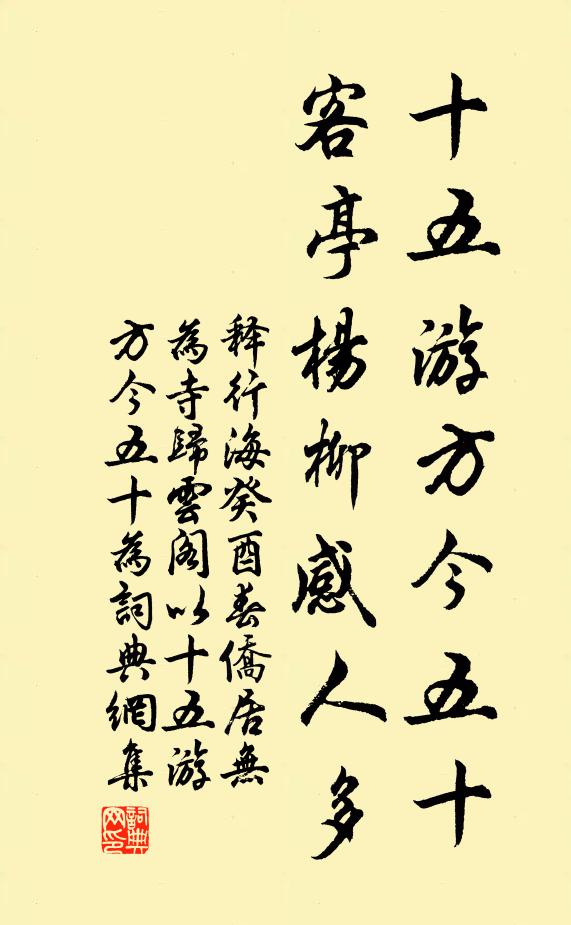 十五游方今五十
客亭楊柳感人多
释行海癸酉春僑居無
為寺歸雲阁以十五游
方今五十為詞典網集
詞典網印